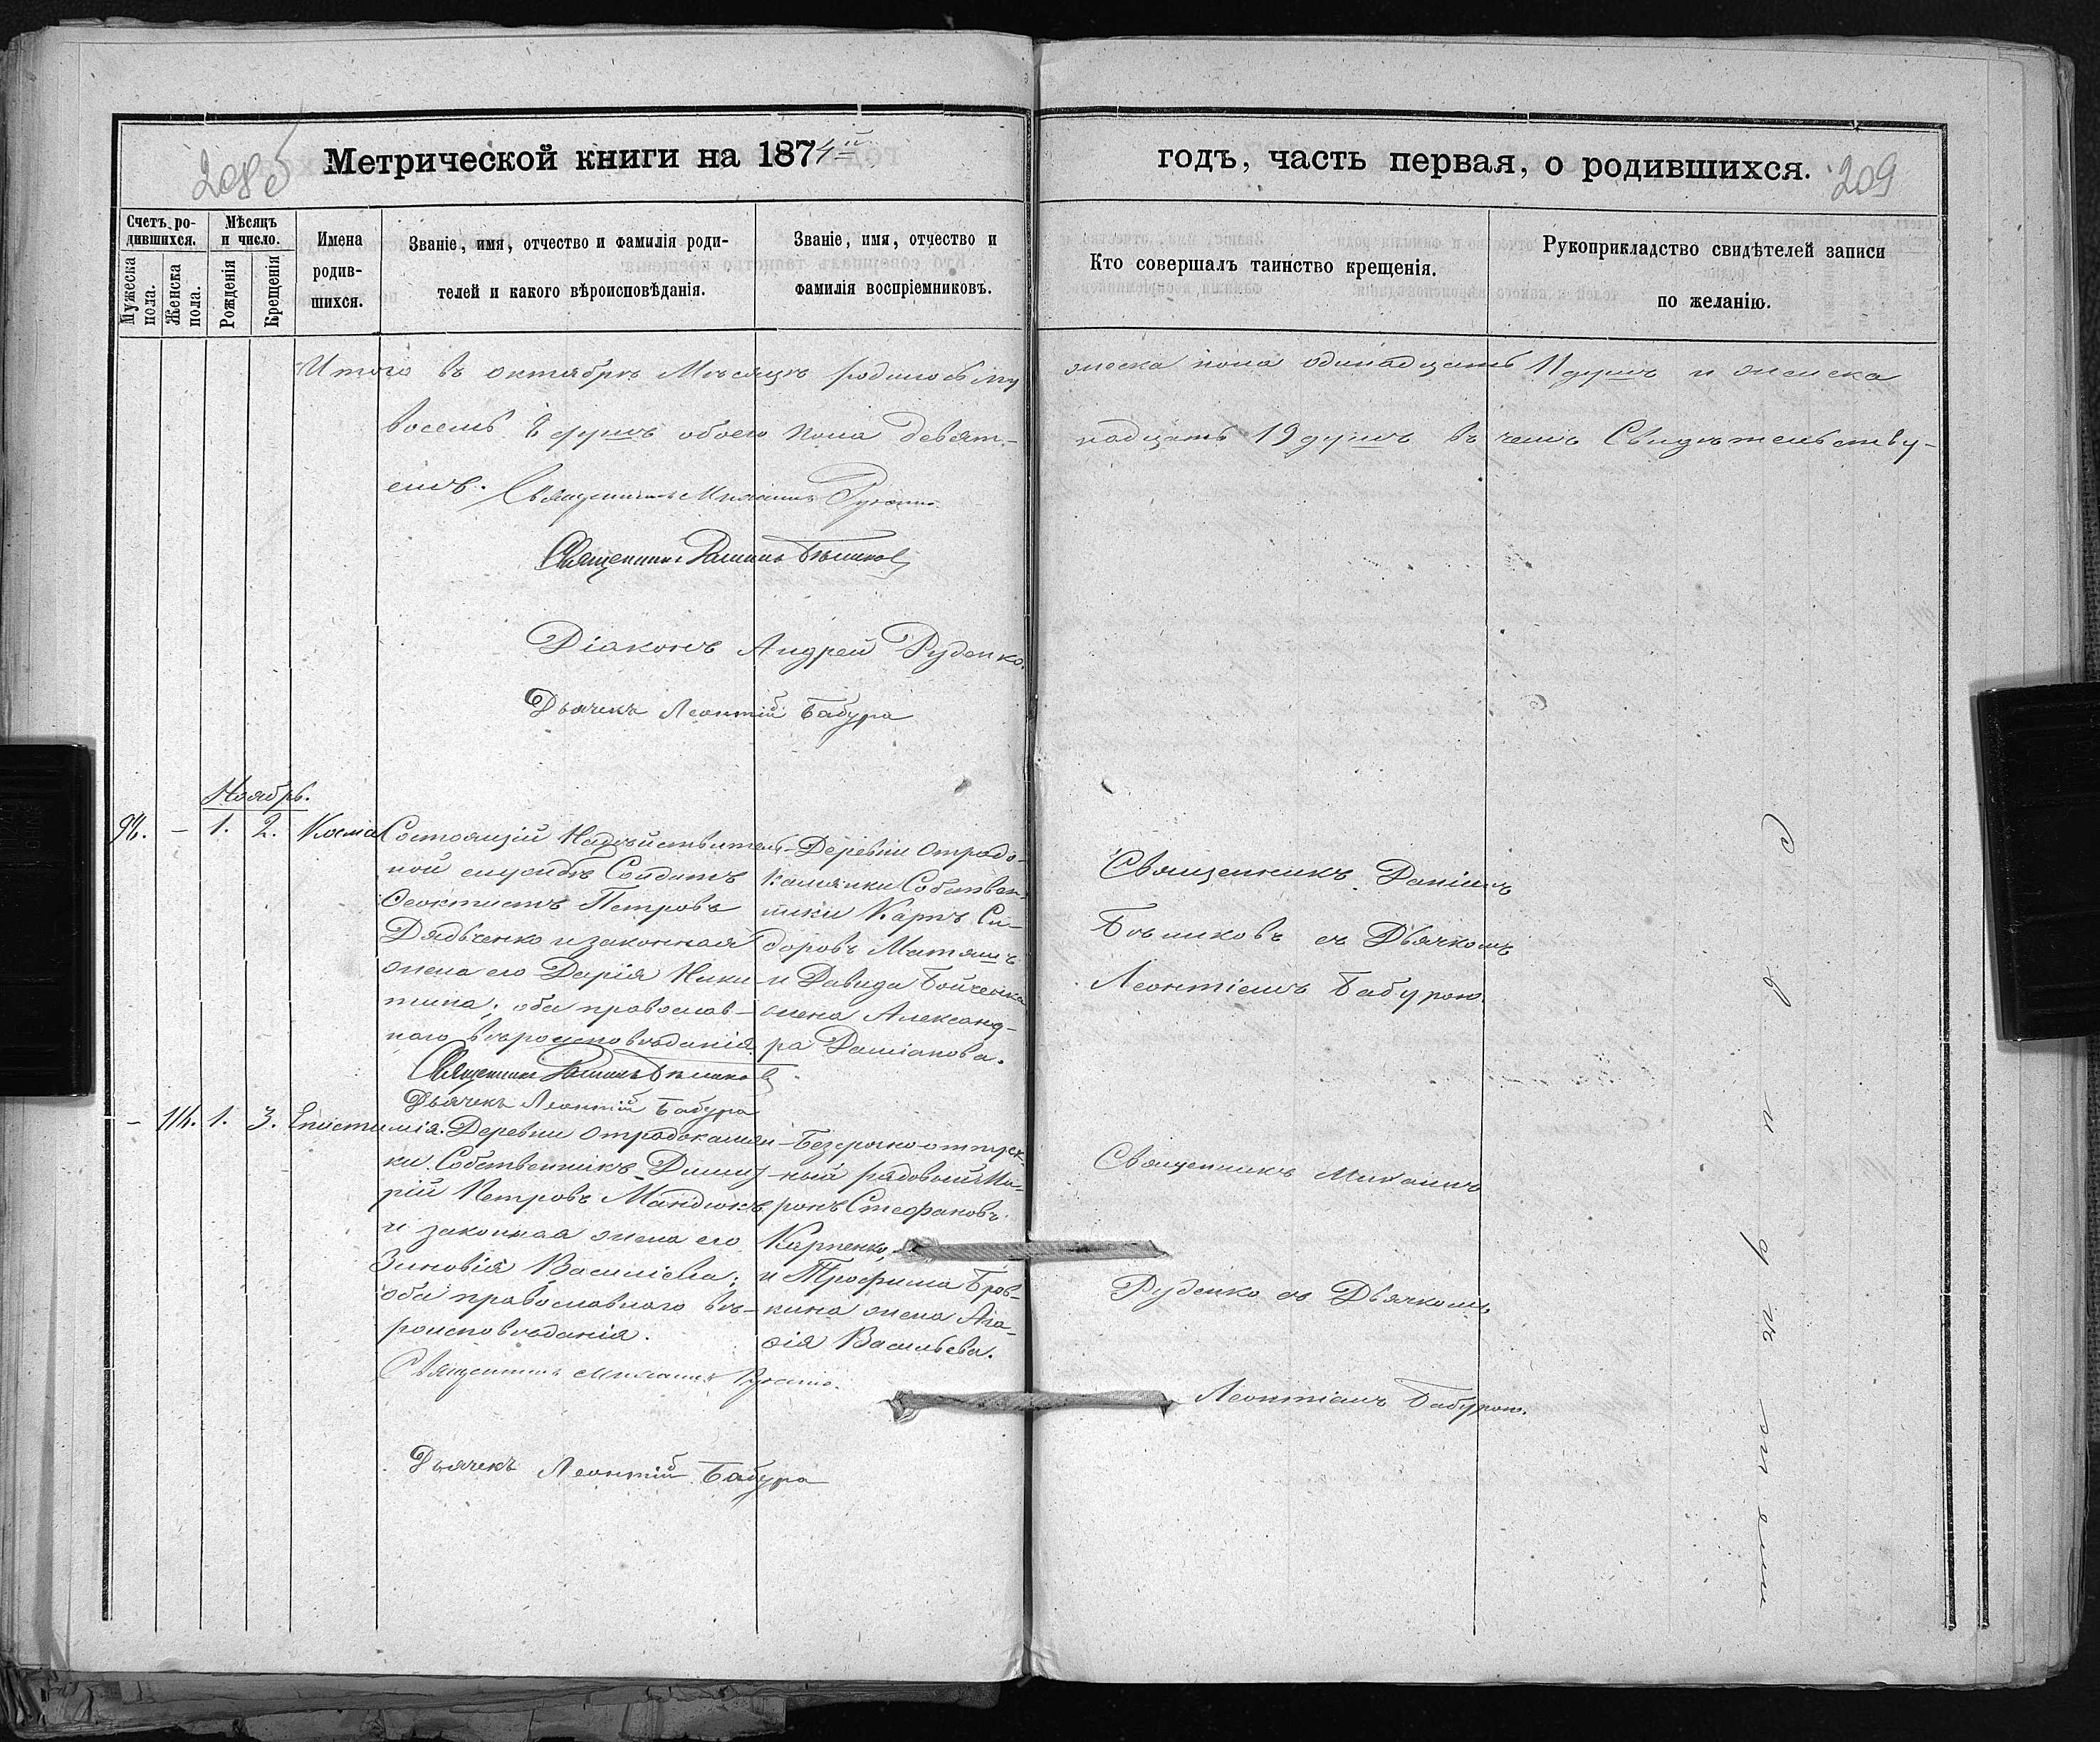 208 б
Метрической книги на 1874й
годъ, часть первая, о родившихся.
209
Счетъ ро-
дившихся.
Мужеска
пола.
Женска
пола.
Мѣсяцъ
и число.
Рожденія
Крещенія
Имена
родив-
шихся.
Званіе, имя, отчество и фамилія роди-
телей и какого вѣроисповѣданія.
Званіе, имя, отчество и
фамилія воспріемниковъ.
Кто совершалъ таинство крещенія.
Рукоприкладство свидѣтелей записи
по желанію.
Итого въ октябрѣ Мѣсяцѣ родилось му
жеска пола одинадцать 11 душъ и женска
восемь 8 душъ обоего пола девят-
надцать 19 душъ въ чемъ Свидѣтельству-
емъ. Священникъ Михаилъ Руденко
Священникъ Даміанъ Бѣликовъ
Діаконъ Андрей Руденко.
Дьячекъ Леонтій Бабура
Ноябрь.
98. – 1. 2. Косма
Состоящій На дѣйствитель-
ной службѣ Солдатъ
Ѳеоктистъ Петровъ
Дядьченко и законная
жена его Дарія Ники-
тина; оба православ-
наго вѣроисповѣданія.
Священникъ Даміанъ Бѣликовъ
Дьячекъ Леонтій Бабура
Деревни Отрадо-
камянки Собствен-
ники Карпъ Си-
доровъ Матяшъ
и Давида Бойченка
жена Александ-
ра Даміанова.
Священникъ Даміанъ
Бѣликовъ съ Дьячкомъ
Леонтіемъ Бабурою.
– 114. 1. 3. Епистимія.
Деревни Отрадокамян-
ки Собственникъ Димит-
рій Петровъ Мандюкъ
и законная жена его
Зиновія Василіева;
оба православнаго вѣ-
роисповѣданія.
Священникъ Михаилъ Руденко.
Дьячекъ Леонтій Бабура
Безсрочно-отпуск-
ный рядовый Ми-
ронъ Стефановъ
Карпенко,
и Трофима Бров-
кина жена Ага-
ѳія Васильева.
Священникъ Михаилъ
Руденко съ Дьячкомъ
Леонтіемъ Бабурою.